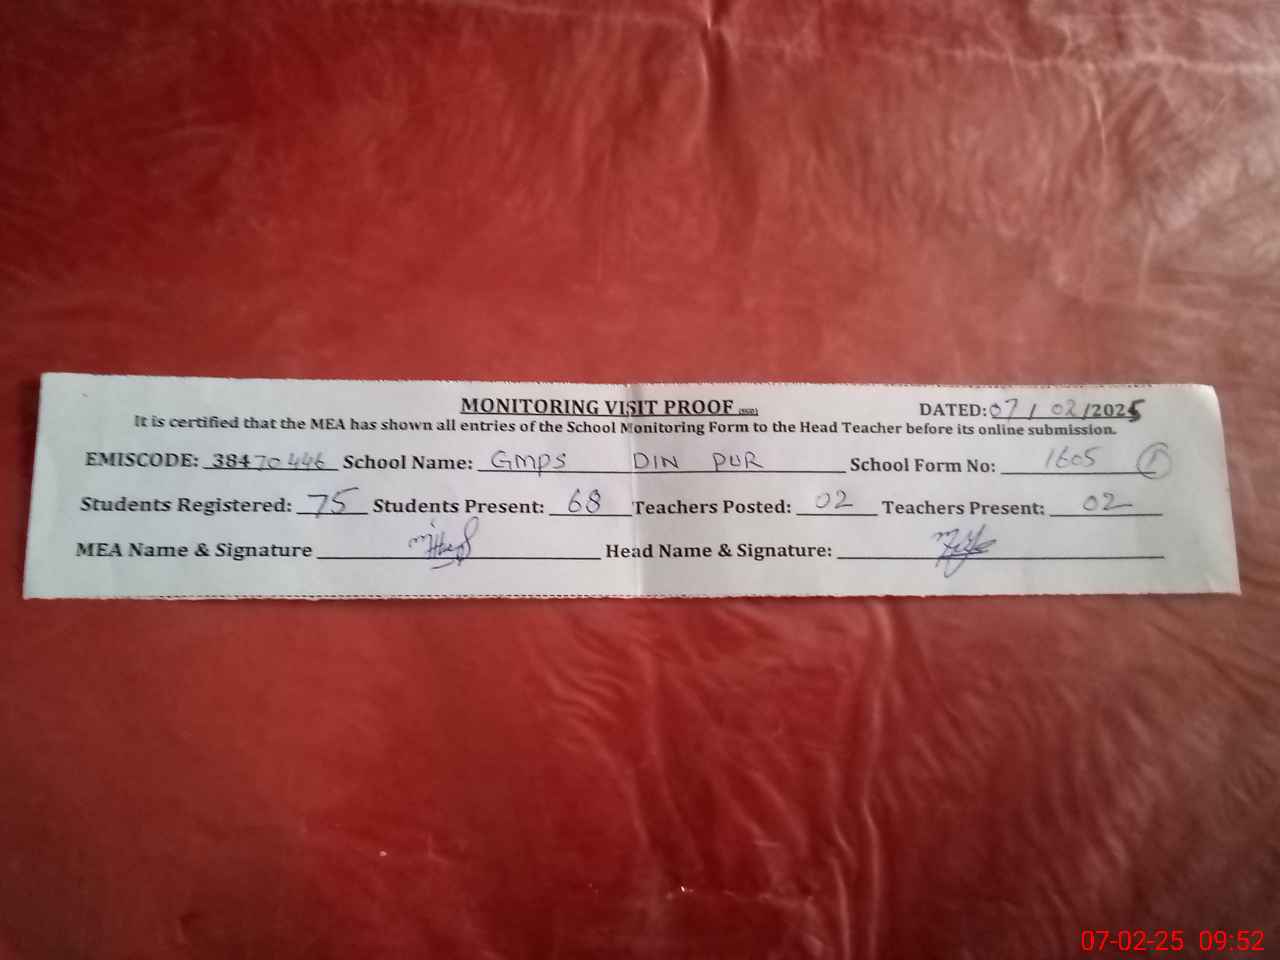 MONITORING VISIT PROOF
DATED: 07 / 02 /2025
It is certified that the MEA has shown all entries of the School Monitoring Form to the Head Teacher before its online submission.
EMISCODE: 38470446 School Name: GMPS DIN PUR School Form No: 1605
Students Registered: 75 Students Present: 68 Teachers Posted: 02 Teachers Present: 02
MEA Name & Signature Head Name & Signature:
07-02-25 09:52